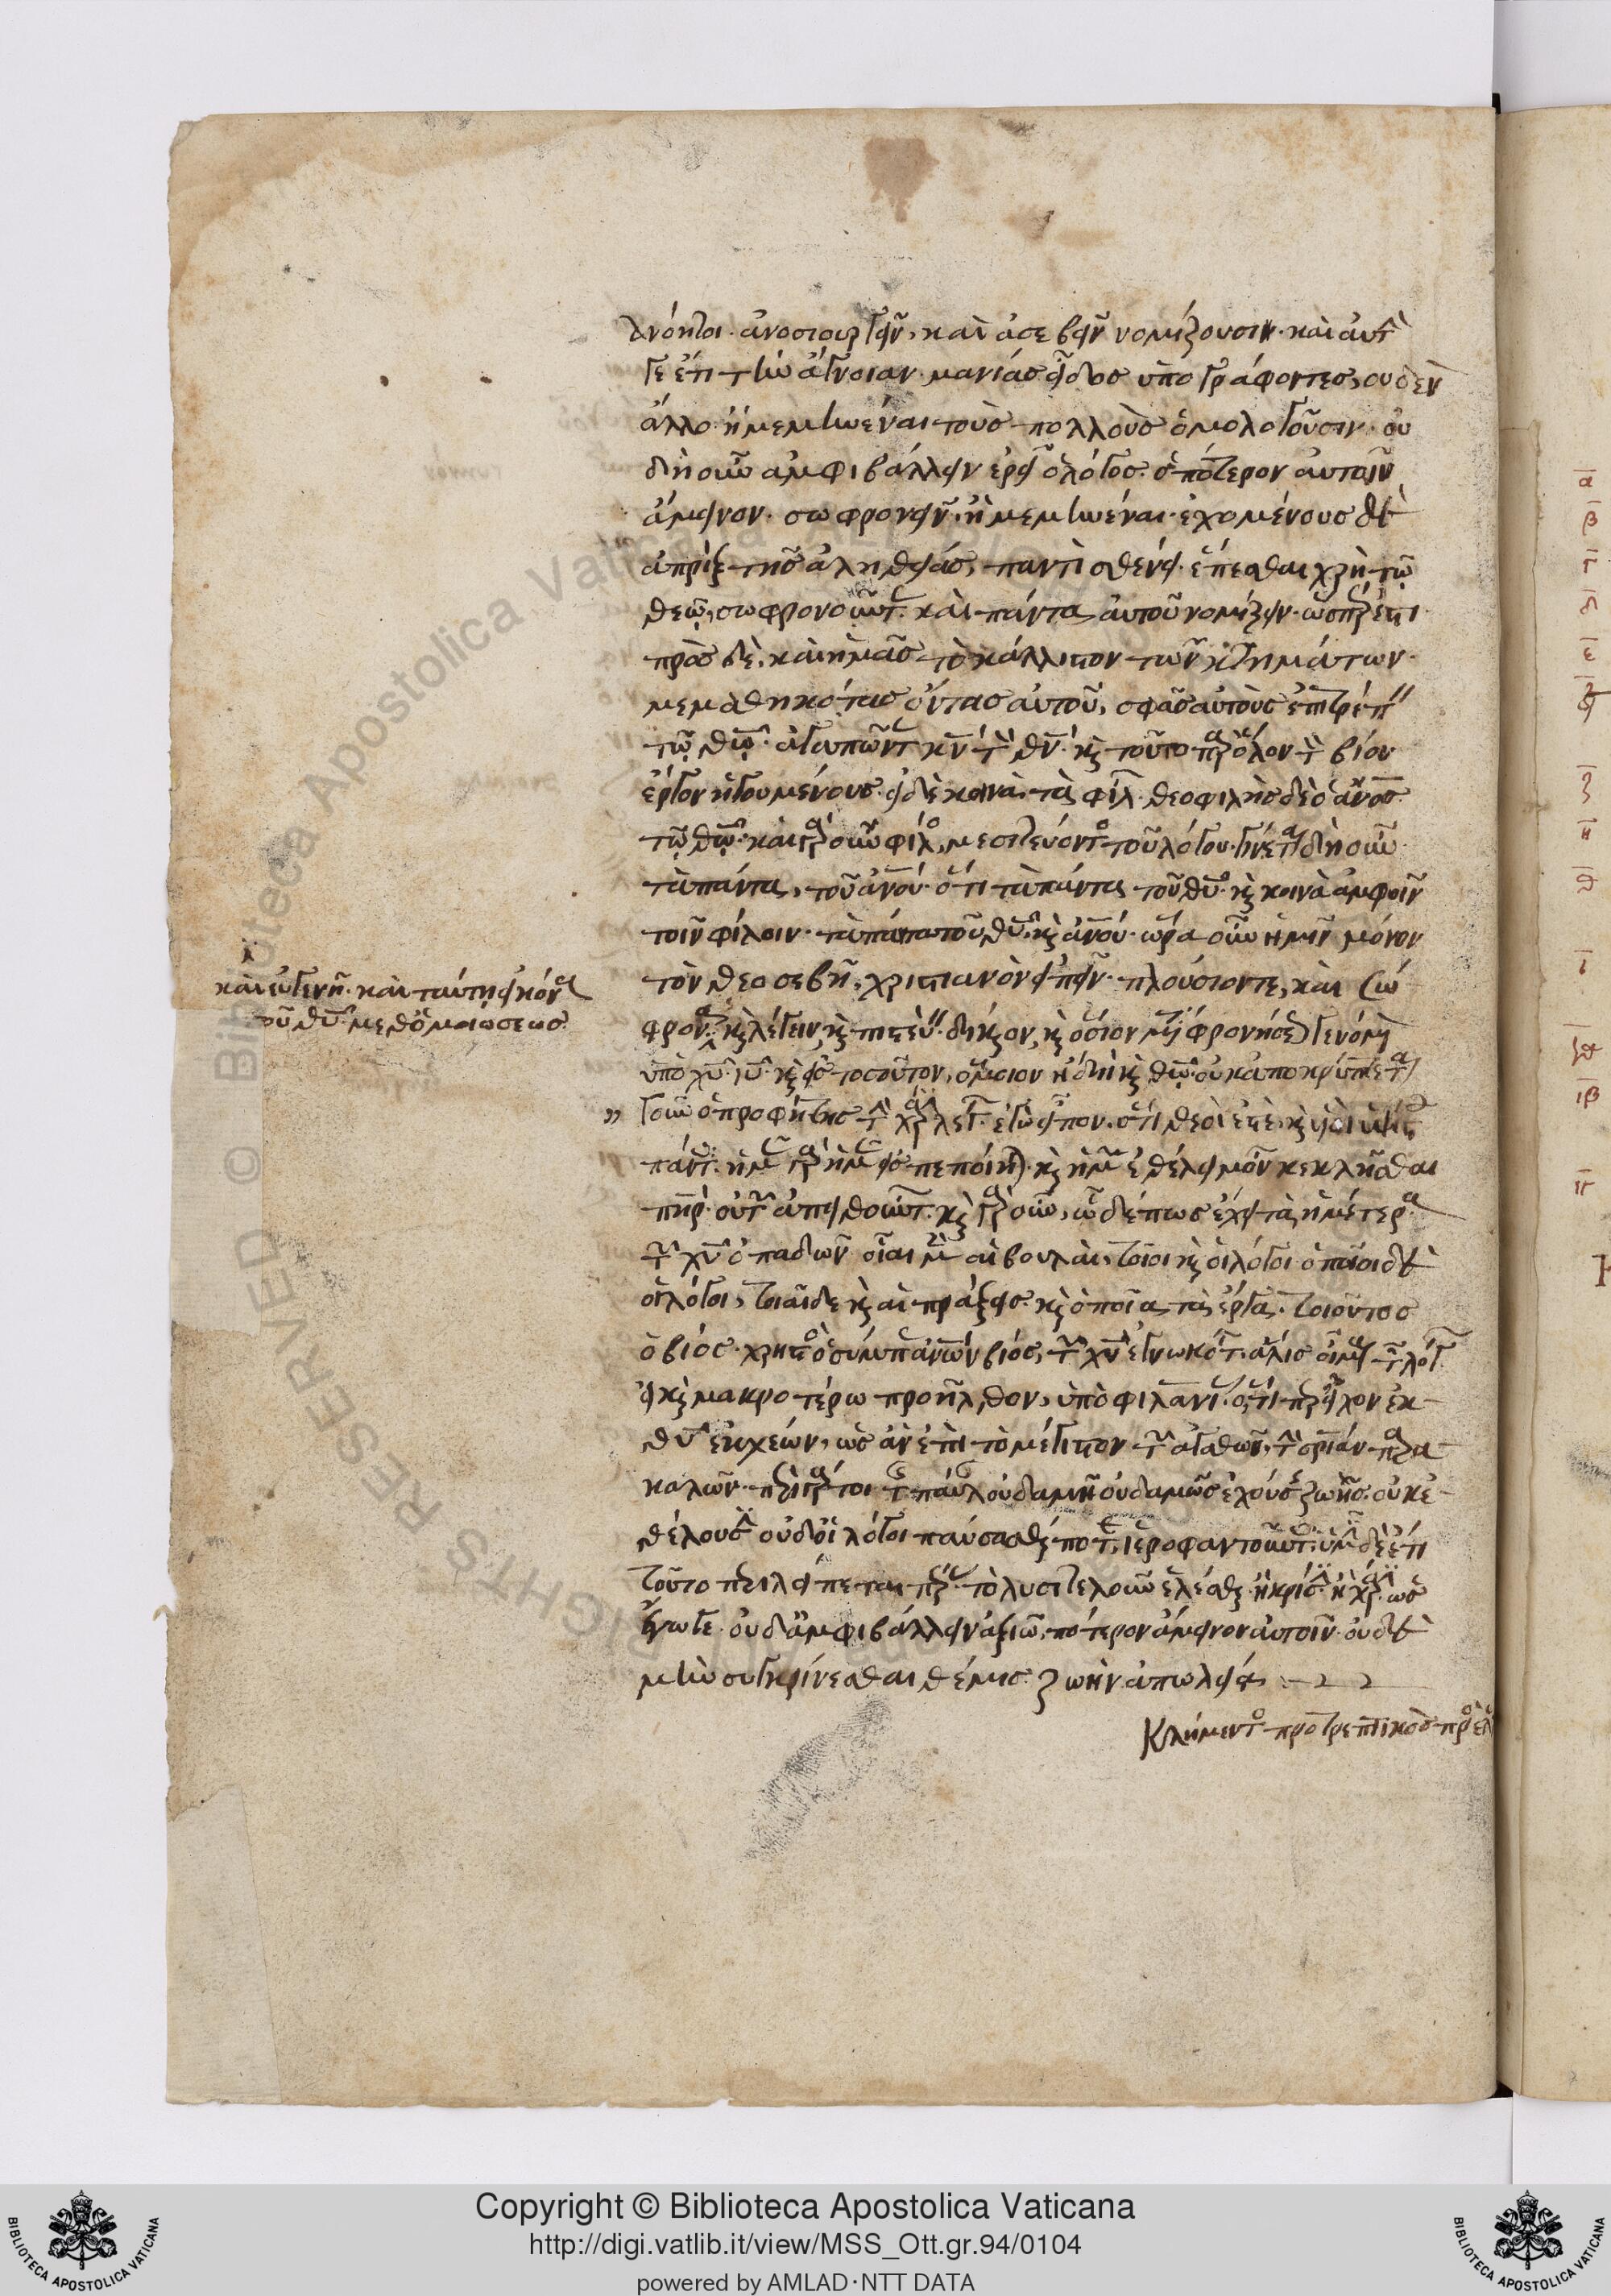 ἀνόητοι. ἀνοσιουργεῖν, καὶ ἀσεβεῖν νομίζουσιν. καὶ αὐτ
γε ἔτι τὴν ἄγνοιαν. μανίας εἶδος ὑπογράφοντες, οὐδὲν
ἄλλο ἢ μεμηνέναι τοὺς πολλοὺς ὁμολογοῦσιν. οὐ
δὴ οὖν ἀμφιβάλλειν ἐρεῖ ὁ λόγος. ὁπότερον αὐτοῖν
ἄμεινον. σωφρονεῖν. ἢ μεμηνέναι. ἐχομένους δὲ
ἀπρὶξ τῆς ἀληθείας, παντὶ σθένει. ἕπεσθαι χρὴ τῷ
θεῷ, σωφρονοῦντ. καὶ πάντα αὐτοῦ νομίζειν. ὥσπερ ἔστι
πρὸς δὲ, καὶ ἡμᾶς τὸ κάλλιστον τῶν κτημάτων.
μεμαθηκότας ὄντας αὐτοῦ, σφᾶς αὐτοὺς ἐπιτρέπ
τῷ θῷ. ἀγαπῶντ κν τ θν. κ τοῦτο παρ ὅλον τ βίον
ἔργον ἡγουμένους. εἰ δὲ κοινὰ τὰ φίλ. θεοφιλὴς δὲ ὁ ἄνος
τῷ θῷ. καὶ γὰρ οὖν φίλο, μεσιτεύοντο τοῦ λόγου. γίνεται δὴ οὖν
τὰ πάντα, τοῦ ἀνου. ὅτι τὰ πάντα τοῦ θυ. κ κοινὰ ἀμφοῖν
τοῖν φίλοιν. τὰ πάντα τοῦ θυ. κ ἀνου. ὥρα οὖν ἡμῖν μόνον
τὸν θεοσεβῆ, χριστιανὸν εἰπεῖν. πλούσιόν τε, καὶ σώ
φρον. κ λέγειν, κ πιστεύ. δίκαιον, κ ὅσιον φρονήσε γενομ
ὑπὸ χυ. ιυ. κ εἰς τοσοῦτον, ὅμοιον ἤδη κ θῷ. οὐκ ἀποκρύπτεται
γοῦν ὁ προφήτης τ χάρ λεγ. ἐγὼ εἶπον. ὅτι θεοί ἐστε κ υἱοὶ ὑψίς
πάντ. ἡμ γὰρ ἡμ εἰσ πεποίη. κ ἡμ ἐθέλει μόν κεκλῆσθαι
πηρ. οὐ τ ἀπειθούντ. κ γὰρ οὖν, ὧδέ πως ἔχει τὰ ἡμέτερα
τ χυ ὀπαδῶν οἷαι μ αἱ βουλαὶ, τοῖοι κ οἱ λόγοι ὁποῖοι δὲ
οἱ λόγοι, τοιαίδε κ αἱ πράξεις. κ ὁποῖα τὰ ἔργα. τοιοῦτος
ὁ βίος. χρηστὸ ὁ σύμπας ἀνων βίος, τ χν ἐγνωκότ. ἅλις οἶμαι τ λόγ
εἰ κ μακροτέρω προῆλθον, ὑπὸ φιλανί. ὅ τι περ εἶχον ἐκ
θυ ἐκχέων, ὡς ἂν ἐπὶ τὸ μέγιστον τ ἀγαθῶν, τ σρίαν παρα
καλῶν. περὶ γάρ τοι τ παῦλ οὐδαμῆ οὐδαμῶς ἐχούσ ζωῆς. οὐκ ἐ
θέλουσ οὐδ οἱ λόγοι παύσασθ ποτ, ἱεροφαντοῦντ. ὑμ δὲ ἔτι
τοῦτο περιλείπεται περ. τὸ λυσιτελοῦν ἑλέσθ. ἢ κρίσ. ἢ χάρ. ὡς
ἔγωγε. οὐδ ἀμφιβάλλειν ἀξιῶ, πότερον ἄμεινον αὐτοῖν. οὐδὲ
μὴν συγκρίνεσθαι θέμις. ζωὴν ἀπωλείᾳ
Κλήμεντο προτρεπτικὸς προ ελ
καὶ εὐγενῆ. καὶ ταύτῃ εἰκόνα
τοῦ θυ. μεθ ὁμοιώσεως
α
β
γ
δ
ε
ζ
η
θ
ι
ια
ιβ
ιγ
Copyright © Biblioteca Apostolica Vaticana
http://digi.vatlib.it/view/MSS_Ott.gr.94/0104
powered by AMLAD·NTT DATA
BIBLIOTECA APOSTOLICA VATICANA
BIBLIOTECA APOSTOLICA VATICANA